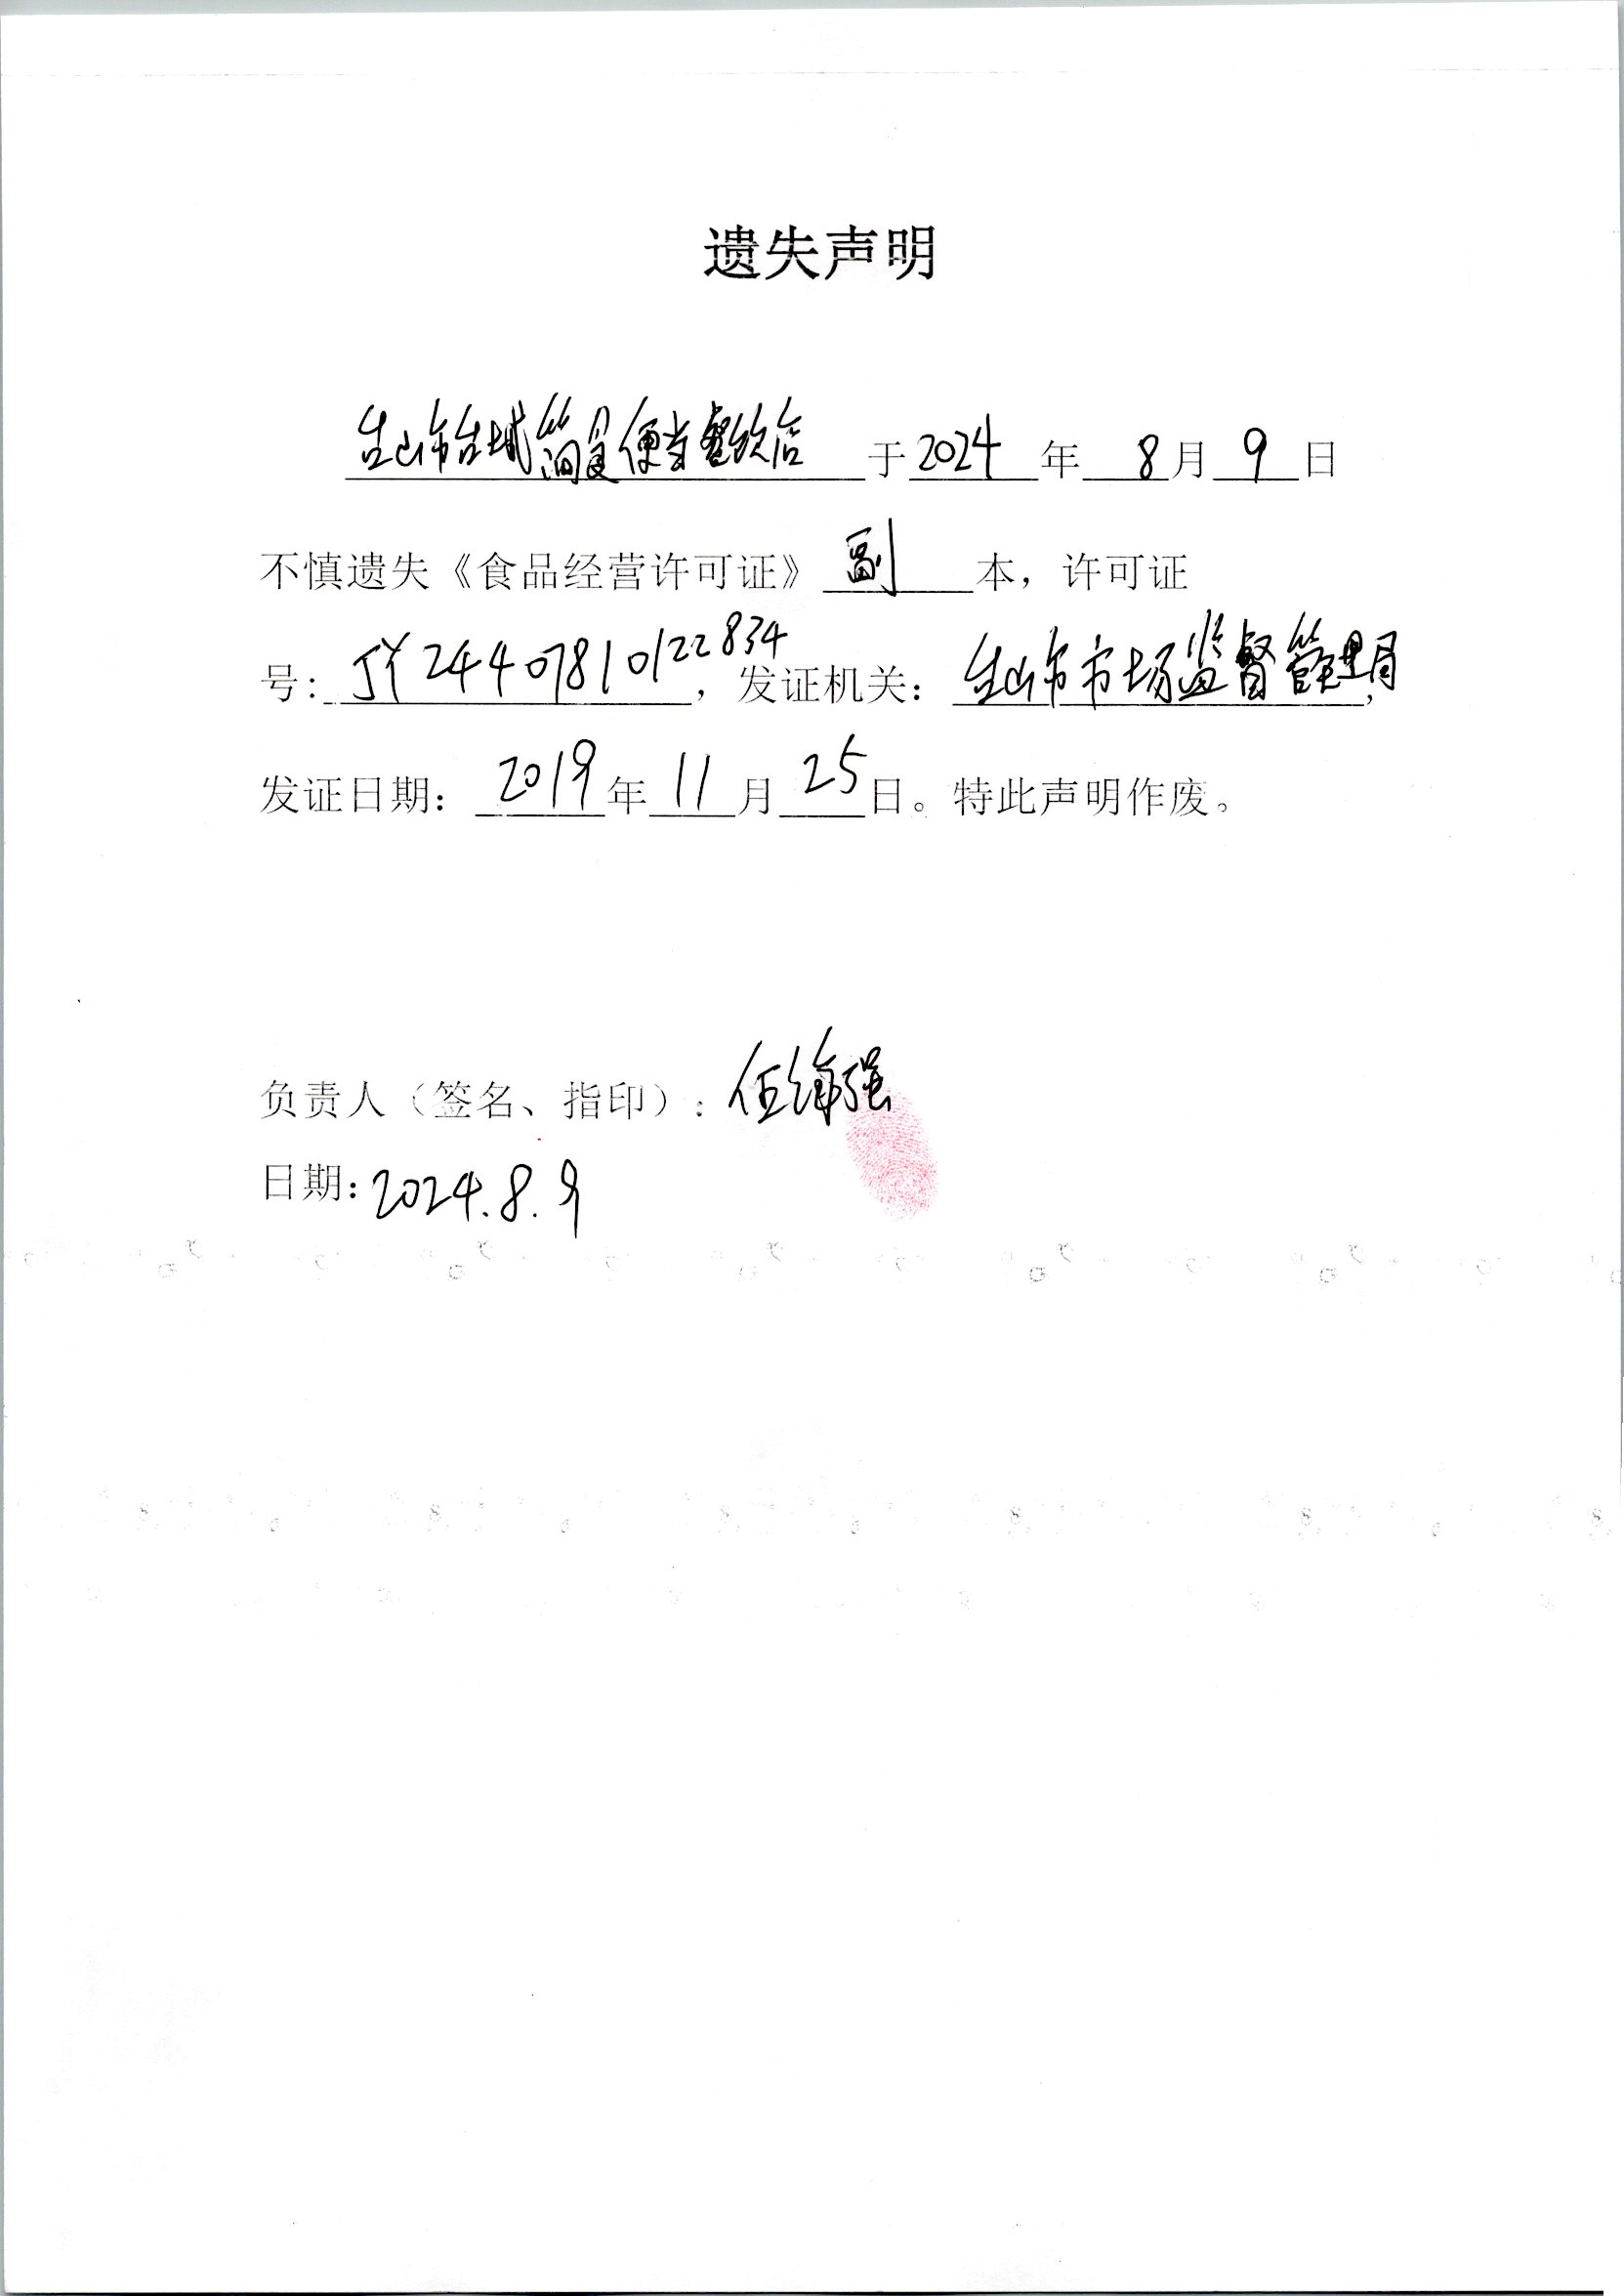 遗失声明
台山市台城简食便当餐饮店于2024年8月9日
不慎遗失《食品经营许可证》副本，许可证
号：JY24407810122834，发证机关：台山市市场监督管理局，
发证日期：2019年11月25日。特此声明作废。
负责人（签名、指印）：伍维强
日期：2024.8.9